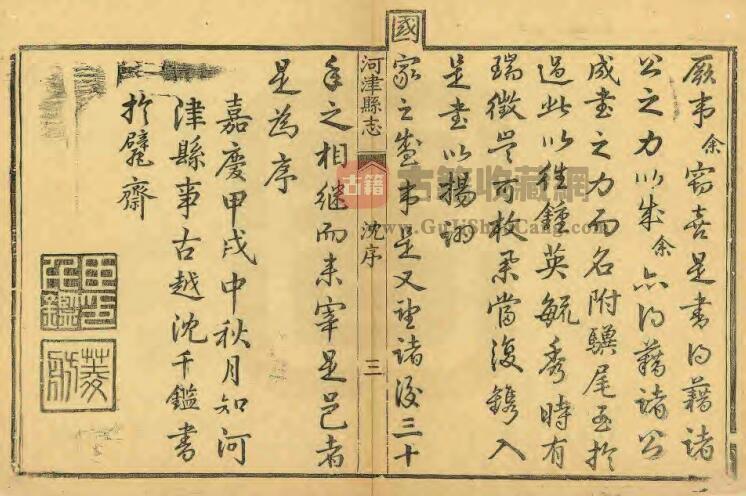 厥事余窃喜是書得藉諸
公之力以成余亦得藉諸公
成書之力而名附驥尾至於
過此以往鍾英毓秀時有
瑞徵豈可枚舉當復鐫入
是書以揚詡
國家之盛事是又望諸後三十
河津縣志 沈序 三
年之相继而来宰是邑者
是為序
嘉慶甲戌中秋月知河
津縣事古越沈千鑑書
於齋
古籍
古籍收藏网
www.GuJiShouCang.com